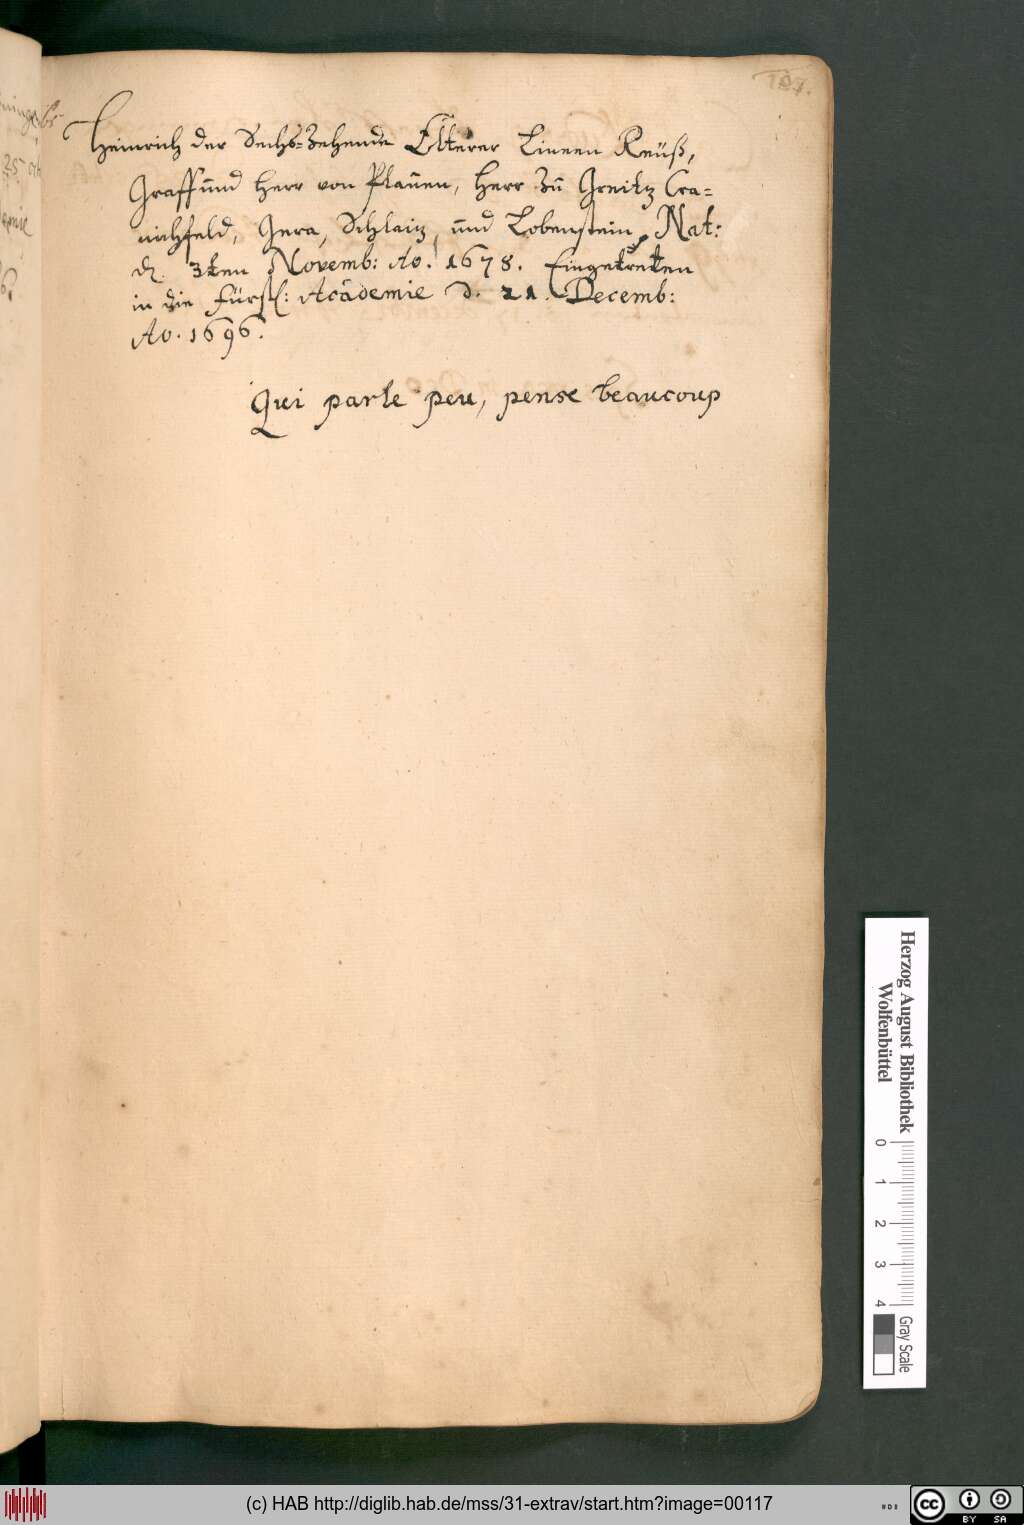 107.
Heinrich der Sechs=zehende Elterer Lineen Reüß,
Graff und Herr von Plauen, Herr zu Greitz Cra=
nichfeld, Gera, Schlaitz, und Lobenstein, Nat:
d. 3ten Novemb: Ao. 1678. Eingetretten
in die Fürstl: Academie d. 21. Decemb:
Ao. 1696.
Qui parle peu, pense beaucoup
Herzog August Bibliothek
Wolfenbüttel
0 1 2 3 4
Gray Scale
(c) HAB http://diglib.hab.de/mss/31-extrav/start.htm?image=00117
cc BY SA